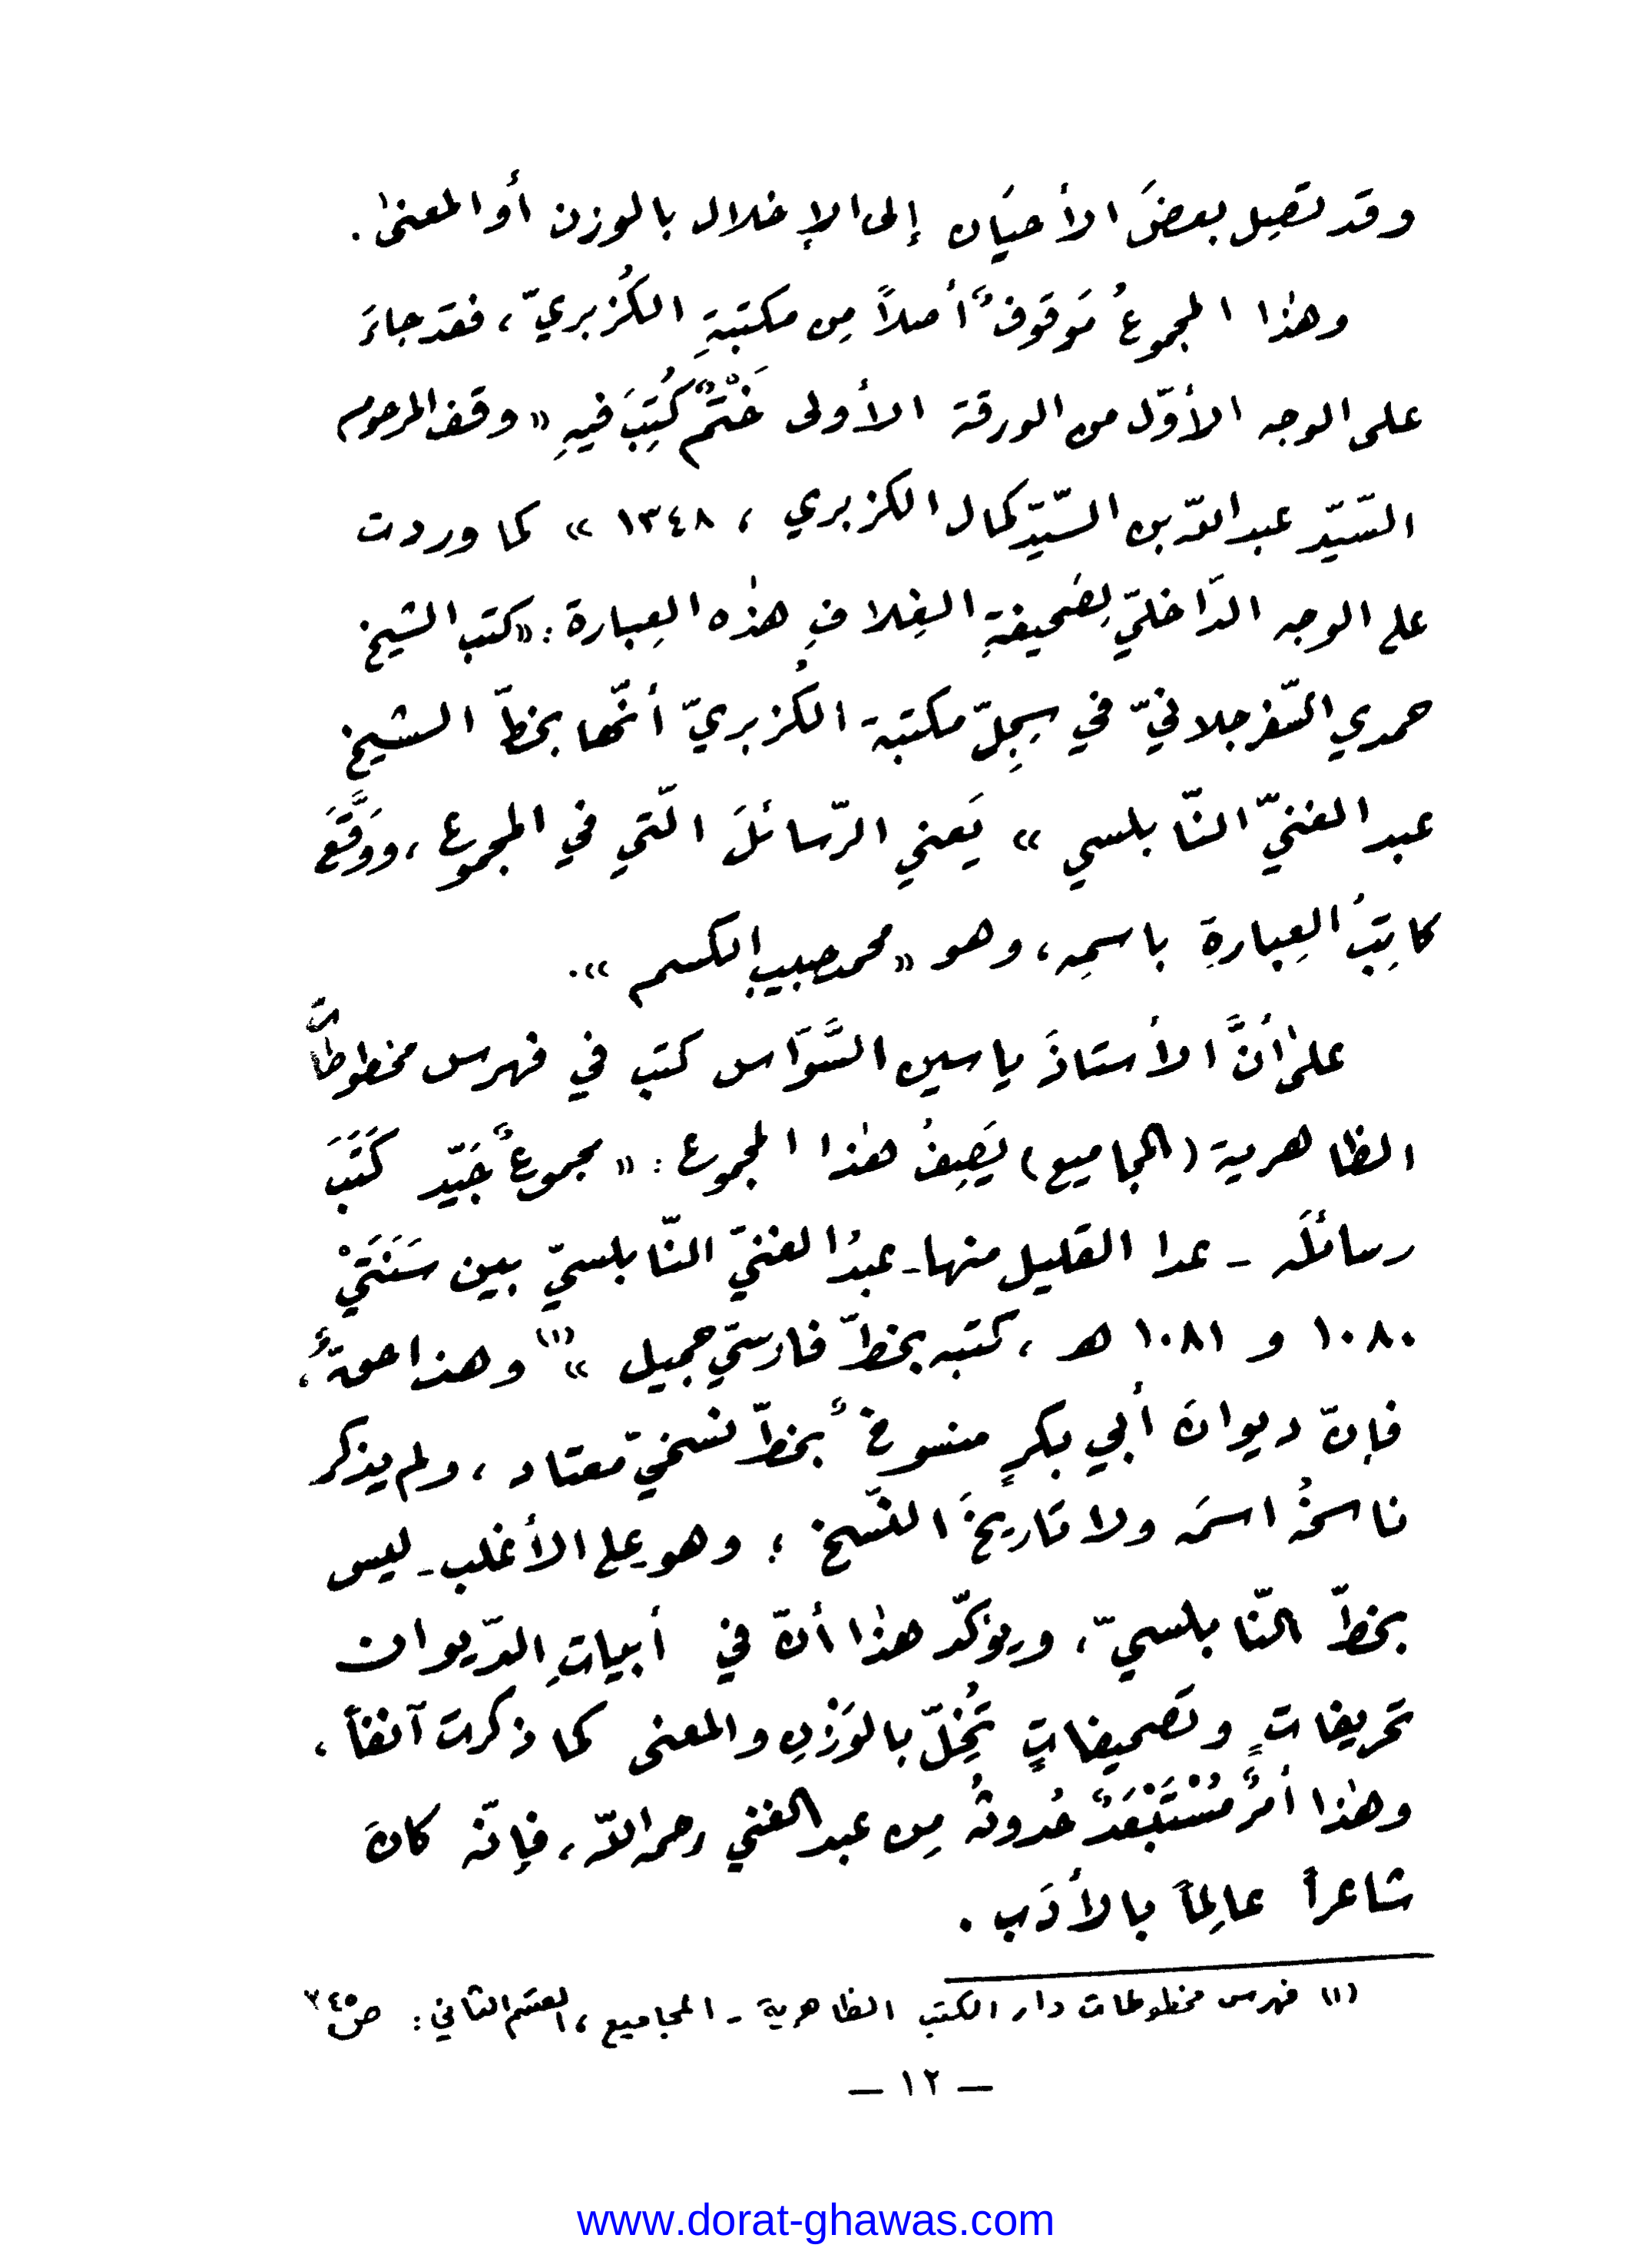 وقد تصِل بعضَ الأحيَان إلى الإخلال بالوزن أو المعنىٰ.
وهذٰا المجموعُ مَوقوفٌ أصلاً مِن مكتبةِ الكُزبريّ، فقد جاءَ
على الوجه الأوّل من الورقة الأولى خَتْمٌ كُتِبَ فيهِ «وقف المرحوم
السّيّد عبد اللّه بن السّيّد كمال الكزبري، ١٣٤٨» كما وردت
على الوجه الدّاخليّ لِصَحيفةِ الغِلافِ هذٰه العِبارة: «كتب الشيخ
حمدي السّفرجلانيّ في سِجِلّ مكتبة الكُزبريّ أنّها بخطّ الشيخ
عبد الغنيّ النّابلسي» يَعني الرّسائلَ الّتي في المجموع، ووَقَّعَ
كاتِبُ العِبارةِ باسمِه، وهو «محمد حبيب الكسم».
علىٰ أنَّ الأستاذَ ياسين السَّوّاس كتب في فهرس مخطوطات
الظاهرية (المجاميع) يَصِفُ هذٰا المجموع: «مجموعٌ جَيّد كَتَبَ
رسائلَه - عدا القليل منها - عبدُ الغنيّ النّابلسيّ بين سَنَتَيْ
١٠٨٠ و ١٠٨١ هـ، كتبه بخطّ فارسّي جميل»(١) وهذا حقٌّ،
فإنّ ديوانَ أبي بكرٍ منسوخٌ بخطّ نسخيّ معتاد، ولم يذكر
ناسخُه اسمَه ولا تاريخَ النّسخ؛ وهو - على الأغلب - ليس
بخطّ النّابلسيّ، ويؤكّد هذٰا أنّ في أبياتِ الدّيوان
تحريفاتٍ وتَصحيفاتٍ تُخِلّ بالوَزْنِ والمعنى كما ذكرت آنفاً،
وهذٰا أمرٌ مُسْتَبْعَدٌ حُدوثُه مِن عبد الغني رحمه اللّه، فإنّه كانَ
شاعراً عالِماً بالأدَب.
(١) فهرس مخطوطات دار الكتب الظاهرية - المجاميع، القسم الثاني: ص
— ١٢ —
www.dorat-ghawas.com